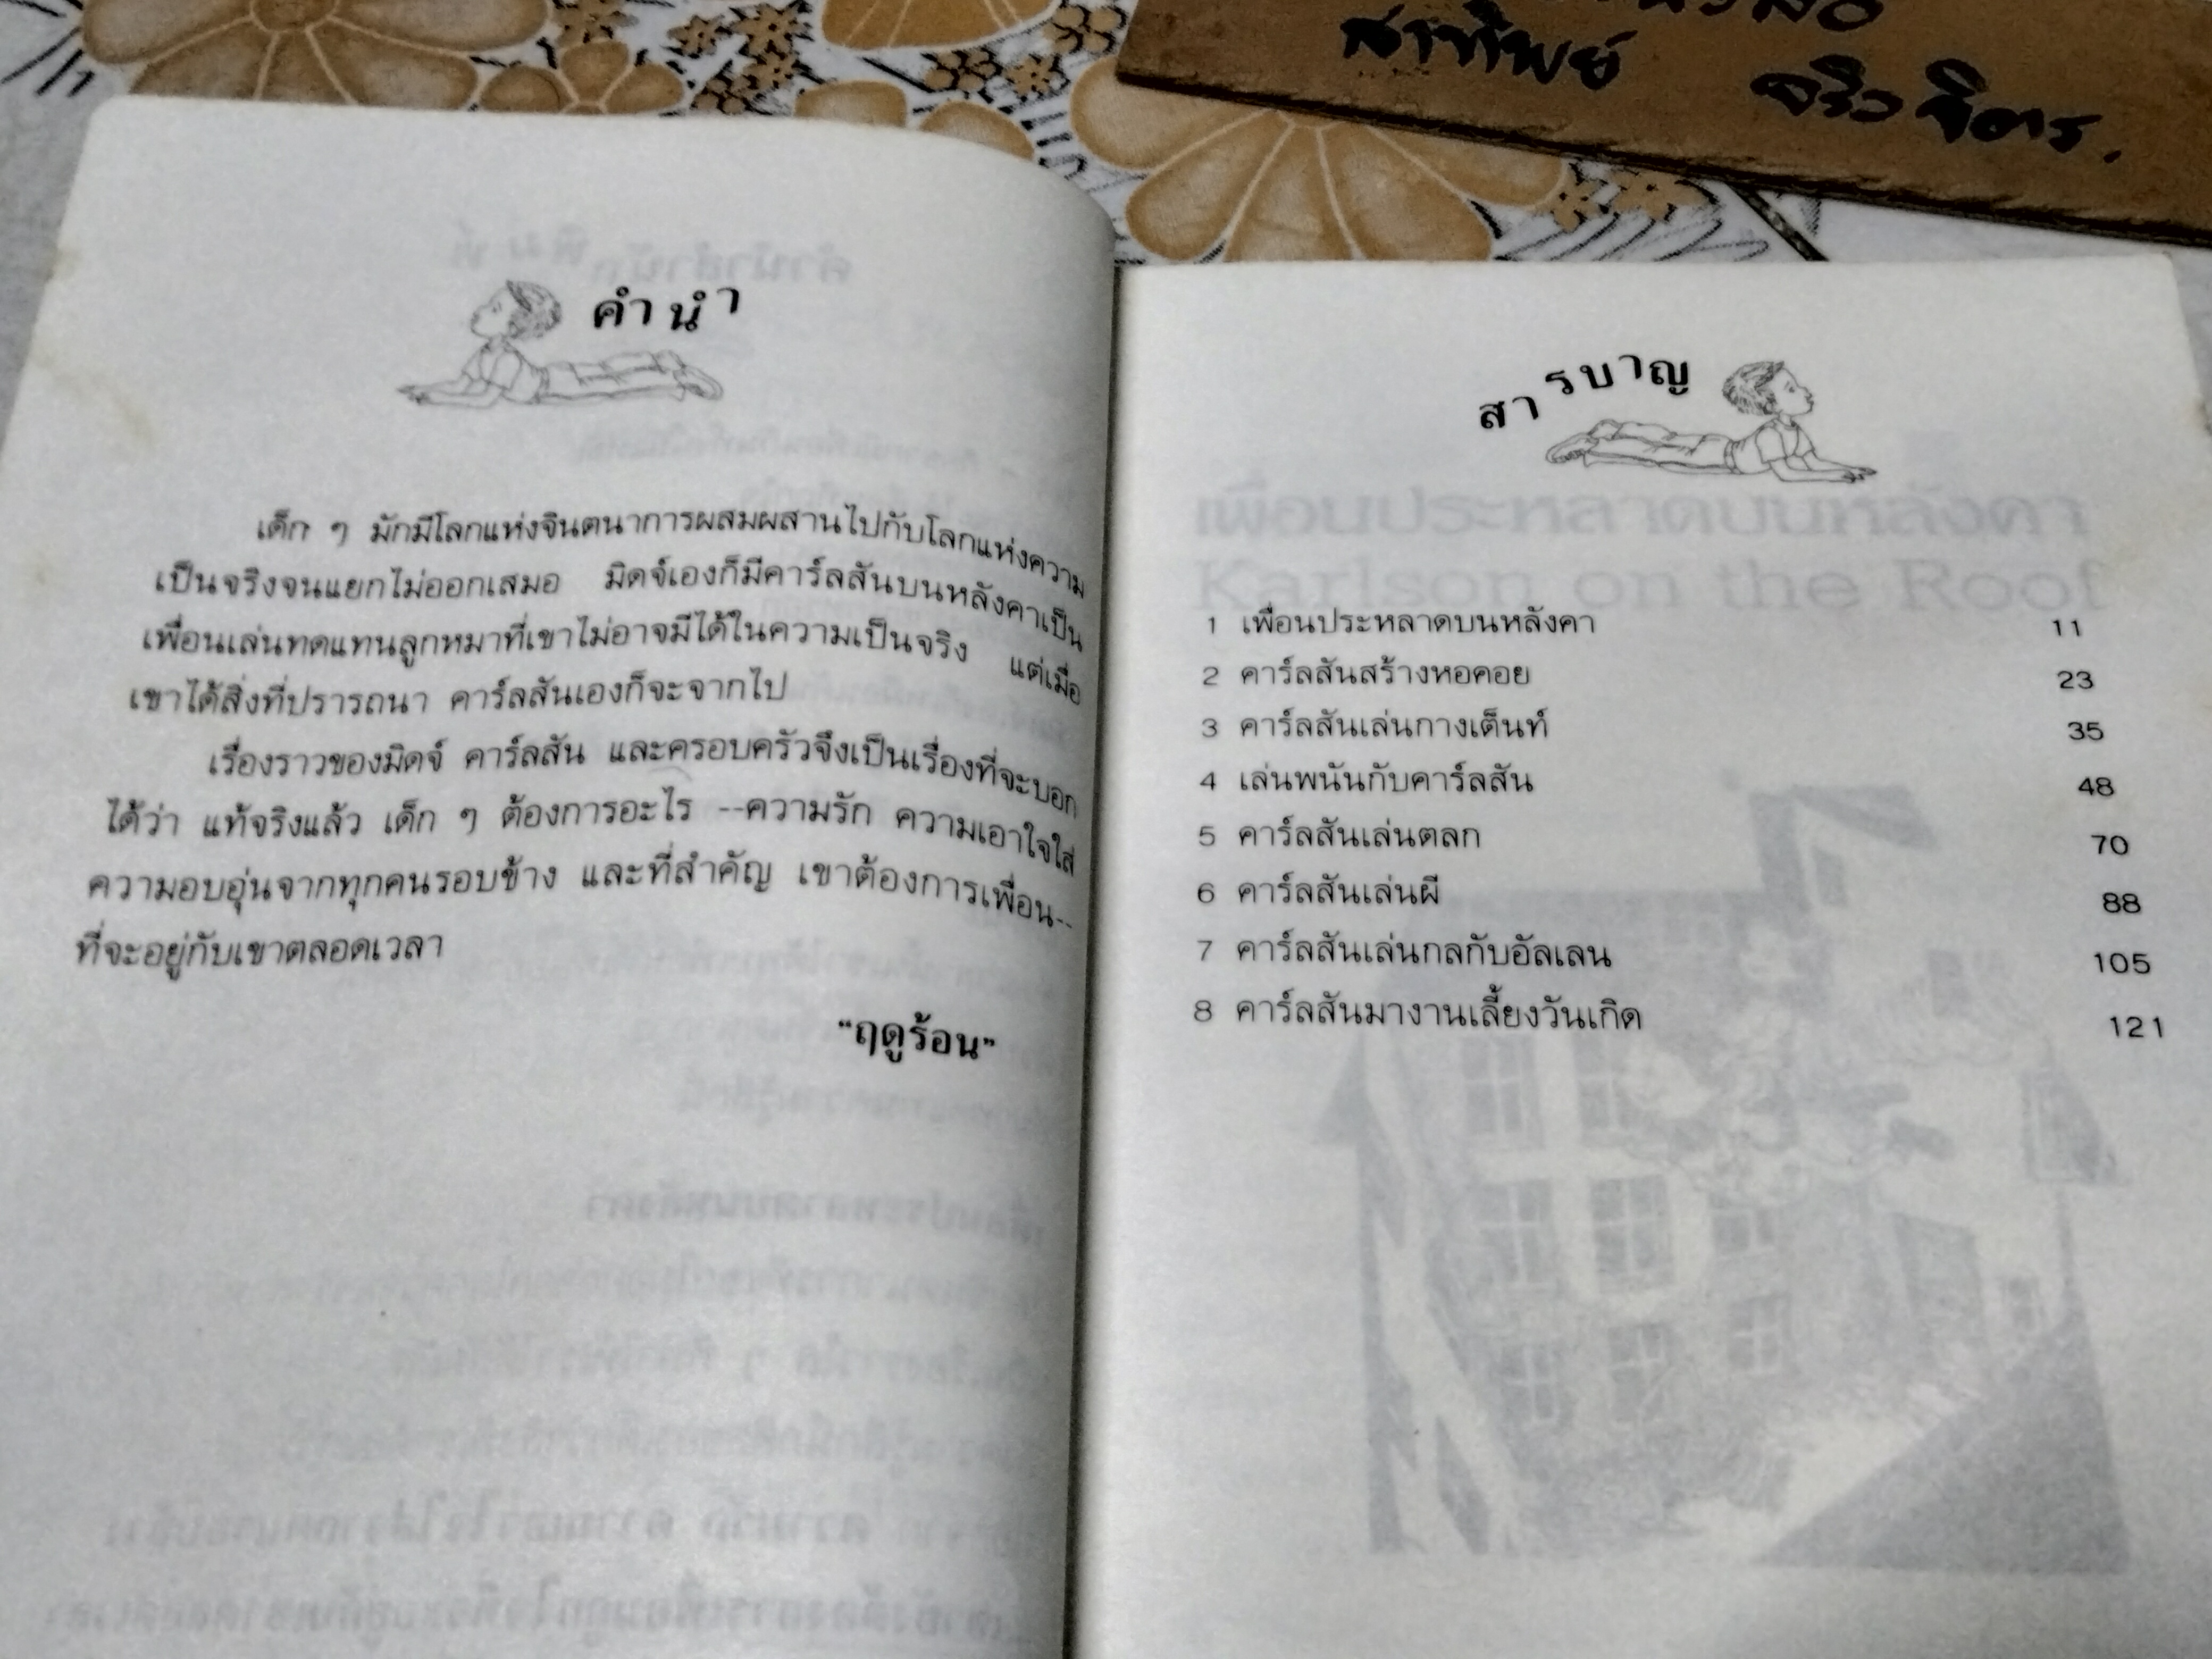 สาทิพย์
คำนำ
เด็ก ๆ มักมีโลกแห่งจินตนาการผสมผสานไปกับโลกแห่งความ
เป็นจริงจนแยกไม่ออกเสมอ มิดจ์เองก็มีคาร์ลสันบนหลังคาเป็น
เพื่อนเล่นทดแทนลูกหมาที่เขาไม่อาจมีได้ในความเป็นจริง แต่เมื่อ
เขาได้สิ่งที่ปรารถนา คาร์ลสันเองก็จะจากไป
เรื่องราวของมิดจ์ คาร์ลสัน และครอบครัวจึงเป็นเรื่องที่จะบอก
ได้ว่า แท้จริงแล้ว เด็ก ๆ ต้องการอะไร --ความรัก ความเอาใจใส่
ความอบอุ่นจากทุกคนรอบข้าง และที่สำคัญ เขาต้องการเพื่อน--
ที่จะอยู่กับเขาตลอดเวลา
"ฤดูร้อน"
สารบาญ
เพื่อนประหลาดบนหลังคา
Karlson on the Roof
1 เพื่อนประหลาดบนหลังคา 11
2 คาร์ลสันสร้างหอคอย 23
3 คาร์ลสันเล่นกางเต็นท์ 35
4 เล่นพนันกับคาร์ลสัน 48
5 คาร์ลสันเล่นตลก 70
6 คาร์ลสันเล่นผี 88
7 คาร์ลสันเล่นกลกับอัลเลน 105
8 คาร์ลสันมางานเลี้ยงวันเกิด 121